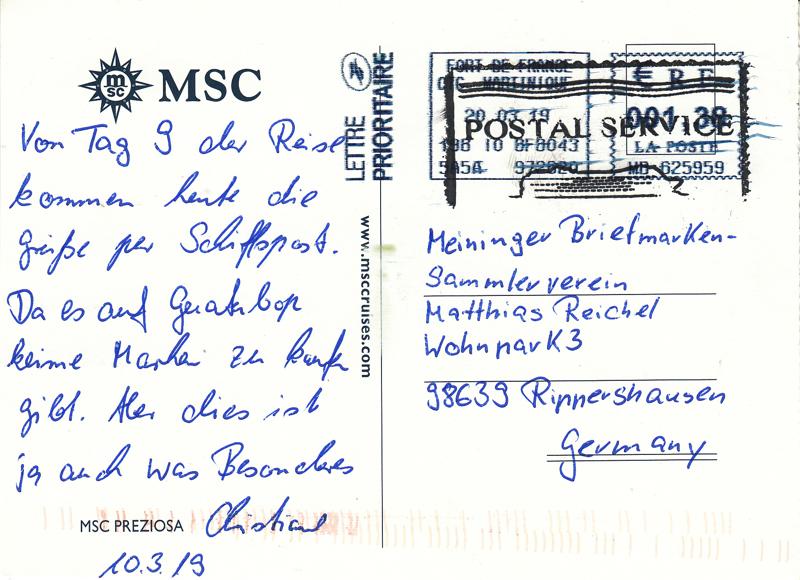 msc
MSC
Von Tag 9 der Reise
kommen heute die
Grüße per Schiffspost.
Da es auf
keine Marken zu kaufen
gibt. Aber dies ist
ja auch was Besonderes
MSC PREZIOSA
Christiane
10.3.19
www.msccruises.com
LETTRE
PRIORITAIRE
FORT DE FRANCE
CTC MARTINIQUE
20 03 19
10 0F8043
5A5A 972020
€ R F
001,38
LA POSTE
MB 625959
POSTAL SERVICE
Meininger Briefmarken-
Sammlerverein
Matthias Reichel
Wohnpark 3
98639 Rippershausen
Germany